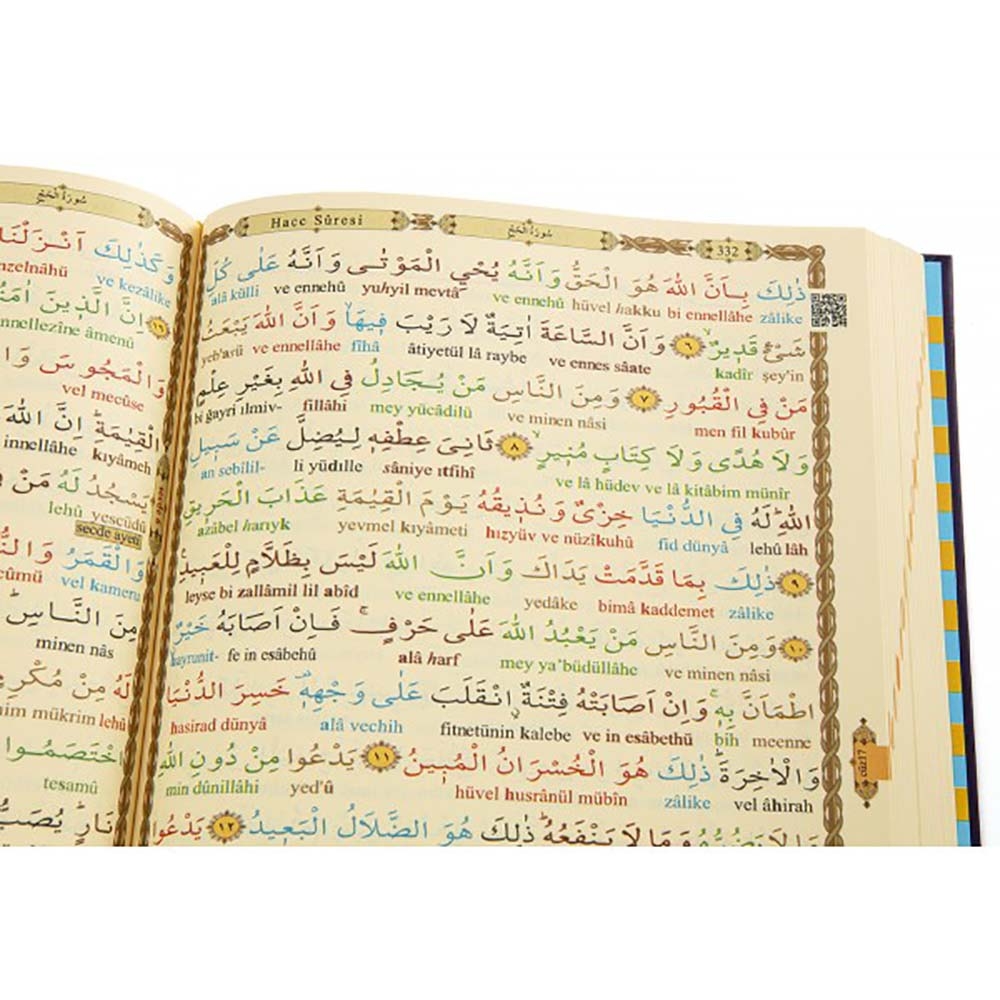 Hacc Sûresi سُورَةُ الْحَجِّ 332
ذٰلِكَ بِاَنَّ اللّٰهَ هُوَ الْحَقُّ وَاَنَّهُ يُحْيِ الْمَوْتٰى وَاَنَّهُ عَلٰى كُلِّ
alâ külli ve ennehû yuhyil mevtâ ve ennehû hüvel hakku bi ennellâhe zâlike
شَيْءٍ قَدٖيرٌۙ ﴿٦﴾ وَاَنَّ السَّاعَةَ اٰتِيَةٌ لَا رَيْبَ فٖيهَاۙ وَاَنَّ اللّٰهَ يَبْعَثُ
yeb'asü ve ennellâhe fîhâ âtiyetül â raybe ve ennes sâate kadîr şey'in
مَنْ فِي الْقُبُورِ ﴿٧﴾ وَمِنَ النَّاسِ مَنْ يُجَادِلُ فِي اللّٰهِ بِغَيْرِ عِلْمٍ
bi ğayri ilmiv- fillâhi mey yücâdilü ve minen nâsi men fil kubûr
وَلَا هُدًى وَلَا كِتَابٍ مُنٖيرٍۙ ﴿٨﴾ ثَانِيَ عِطْفِهٖ لِيُضِلَّ عَنْ سَبٖيلِ
an sebîlil- li yüdılle sâniye ıtfihî ve lâ hüdev ve lâ kitâbim münîr
اللّٰهِؕ لَهُ فِي الدُّنْيَا خِزْيٌ وَنُذٖيقُهُ يَوْمَ الْقِيٰمَةِ عَذَابَ الْحَرٖيقِ
azâbel harıyk yevmel kıyâmeti hızyüv ve nüzîkuhû fid dünyâ lehû lâh
﴿٩﴾ ذٰلِكَ بِمَا قَدَّمَتْ يَدَاكَ وَاَنَّ اللّٰهَ لَيْسَ بِظَلَّامٍ لِلْعَبٖيدِ
leyse bi zallâmil lil abîd ve ennellâhe yedâke bimâ kaddemet zâlike
﴿١٠﴾ وَمِنَ النَّاسِ مَنْ يَعْبُدُ اللّٰهَ عَلٰى حَرْفٍۚ فَاِنْ اَصَابَهُ خَيْرٌ
hayrunit- fe in esâbehû alâ harf mey ya'büdüllâhe ve minen nâsi
اطْمَاَنَّ بِهٖۚ وَاِنْ اَصَابَتْهُ فِتْنَةٌ انْقَلَبَ عَلٰى وَجْهِهٖ خَسِرَ الدُّنْيَا
hasirad dünyâ alâ vechih fitnetünin kalebe ve in esâbethü bih meenne
وَالْاٰخِرَةَؕ ذٰلِكَ هُوَ الْخُسْرَانُ الْمُبٖينُ ﴿١١﴾ يَدْعُوا مِنْ دُونِ اللّٰهِ
min dûnillâhi yed'û hüvel husrânül mübîn zâlike vel âhirah
مَا لَا يَضُرُّهُ وَمَا لَا يَنْفَعُهُؕ ذٰلِكَ هُوَ الضَّلَالُ الْبَعٖيدُ ﴿١٢﴾ يَدْعُوا
cüz17
سُورَةُ الْحَجِّ
وَكَذٰلِكَ اَنْزَلْنَا
nzelnâhü ve kezâlike
﴿١٦﴾ اِنَّ الَّذٖينَ اٰمَنُ
nnellezîne âmenû
وَالْمَجُوسَ وَا
vel mecûse
الْقِيٰمَةِؕ اِنَّ اللّٰهَ
innellâhe kıyâmeh
يَسْجُدُ لَهُ مَنْ فِ
lehû yescüdü
secde ayeti
وَالْقَمَرُ وَالنُّ
cûmü vel kameru
مِنَ النَّاسِؕ
minen nâs
لَهُ مِنْ مُكْرِ
im mükrim lehû
اخْتَصَمُوا
tesamû
نَارٍؕ يُصَبُّ